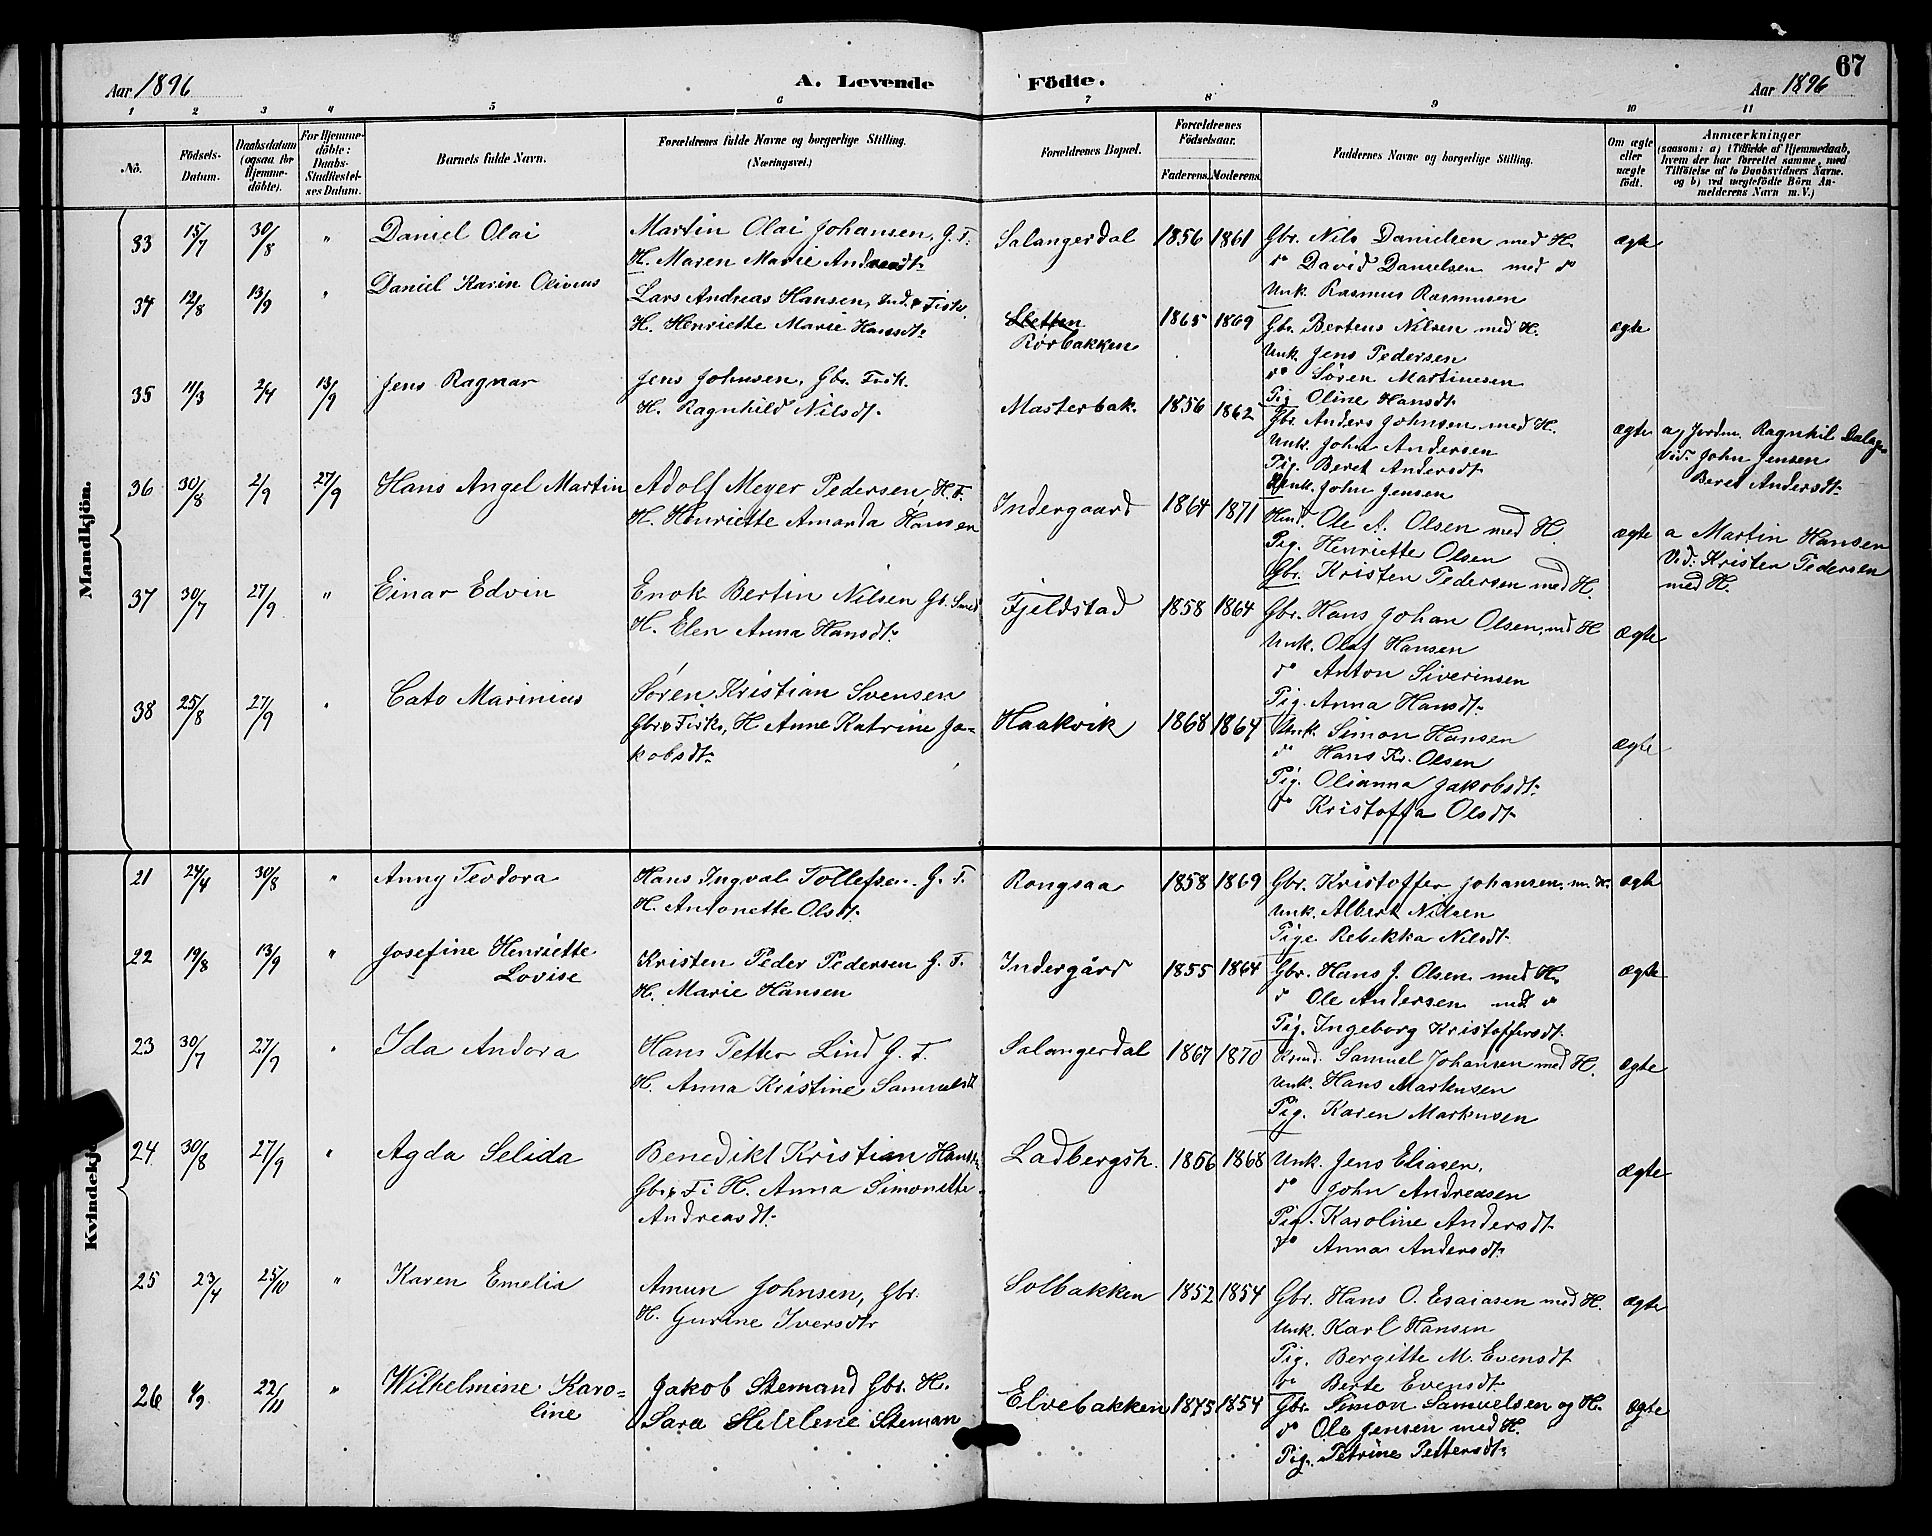 67
Aar 1896 A. Levende Födte. Aar 1896
1 2 3 4 5 6 7 8 9 10 11
No. Födsels-Datum. Daabsdatum (ogsaa for Hjemme-döbte). For Hjemme-döbte: Daabs-Stadfæstel-ses Datum. Barnets fulde Navn. Forældrenes fulde Navne og borgerlige Stilling. (Næringsvei.) Forældrenes Bopæl. Forældrenes Födselsaar. Faderens. Moderens. Faddernes Navne og borgerlige Stilling. Om ægte eller uægte födt. Anmærkninger (saasom: a) i Tilfælde af Hjemmedaab, hvem der har forrettet samme, med Tilföielse af to Daabsvidners Navne. og b) ved uægtefödte Börn An-melderens Navn m. V.)
Mandkjön.
33 15/7 30/8 " Daniel Olai Martin Olai Johansen, G. F. Salangerdal 1856 1861 Gbr. Nils Danielsen med H. ægte
H. Maren Marie Andreasdt. do David Danielsen med do
Unk. Rasmus Rasmussen
34 12/8 13/9 " Daniel Karin Olivius Lars Andreas Hansen, Ind. & Fisk. Sletten 1865 1869 Gbr. Bertens Nilsen med H. ægte
H. Henriette Marie Hansdt. Rörbakken Unk. Jens Pedersen
do Sören Martinesen
Pig Oline Hansdt.
35 11/3 2/4 13/9 Jens Ragnar Jens Johnsen, Gbr. Fisk. Masterbak. 1856 1862 Gbr. Anders Johnsen med H. ægte a, Jordm. Ragnhil Dalage
H. Ragnhild Nilsdt. Unk. John Andersen Vid: John Jensen
Pig. Beret Andersdt. Beret Andersdt.
Unk. John Jensen
36 30/8 2/9 27/9 Hans Angel Martin Adolf Meyer Pedersen, H. F. Indergaard 1864 1871 Hmd. Ole A. Olsen med H. ægte a Martin Hansen
H. Henriette Amanda Hansen Pig. Henriette Olsen Vid: Kristen Pedersen
Gbr. Kristen Pedersen med H. med H.
37 30/7 27/9 " Einar Edvin Enok Bertin Nilsen Gb. Smed Fjeldstad 1858 1864 Gbr. Hans Johan Olsen, md H ægte
H. Elen Anna Hansdt. Unk. Olaf Hansen
do Anton Siverinsen
Pig. Anna Hansdt.
38 25/8 27/9 " Cato Marinius Sören Kristian Svensen Haakvik 1868 1864 Unk. Simon Hansen ægte
Gbr & Fisk., H Anne Katrine Ja- do Hans Kr. Olsen
kobsdt. Pig. Olianna Jakobsdt.
do Kristoffa Olsdt.
Kvindekj
21 24/4 30/8 " Anny Teodora Hans Ingval Tollefsen. G. F. Rongsaa 1858 1869 Gbr. Kristoffer Johansen m. H. ægte
H. Antonette Olsdt. Unk. Albert Nilsen
Pige Rebekka Nilsdt.
22 19/8 13/9 " Josefine Henriette Kristen Peder Pedersen G. F. Indergård 1855 1864 Gbr. Hans J. Olsen med H. ægte
Lovise H. Marie Hansen do Ole Andersen med do
Pig. Ingeborg Kristoffersdt.
23 30/7 27/9 " Ida Andora Hans Petter Lind G. F. Salangerdal 1867 1870 Kmd. Samuel Johansen med H. ægte
H. Anna Kristine Samuelsdt Unk. Hans Markusen
Pig. Karen Markusen
24 30/8 27/9 " Agda Selida Benedikt Kristian Hansen Ladbergsh. 1856 1868 Unk. Jens Eliasen. ægte
Gbr & Fi H. Anna Simonette do John Andreasen
Andreasdt. Pig. Karoline Andersdt.
do Anna Andersdt.
25 23/4 25/10 " Karen Emelia Amun Johnsen, Gbr. Solbakken 1852 1854 Gbr. Hans O. Esaiasen med H. ægte
H. Gurine Iversdtr Unk. Karl Hansen
Pig. Bergitte M. Evensdt
do Berte Evensdt.
26 1/9 22/11 " Wilhelmine Karo- Jakob Stemand Gbr. H. Elvebakken 1845 1854 Gbr. Simon Samuelsen og H. ægte
line Sara Helelene Steman do Ole Jensen med H.
Pig. Petrine Pettersdt.